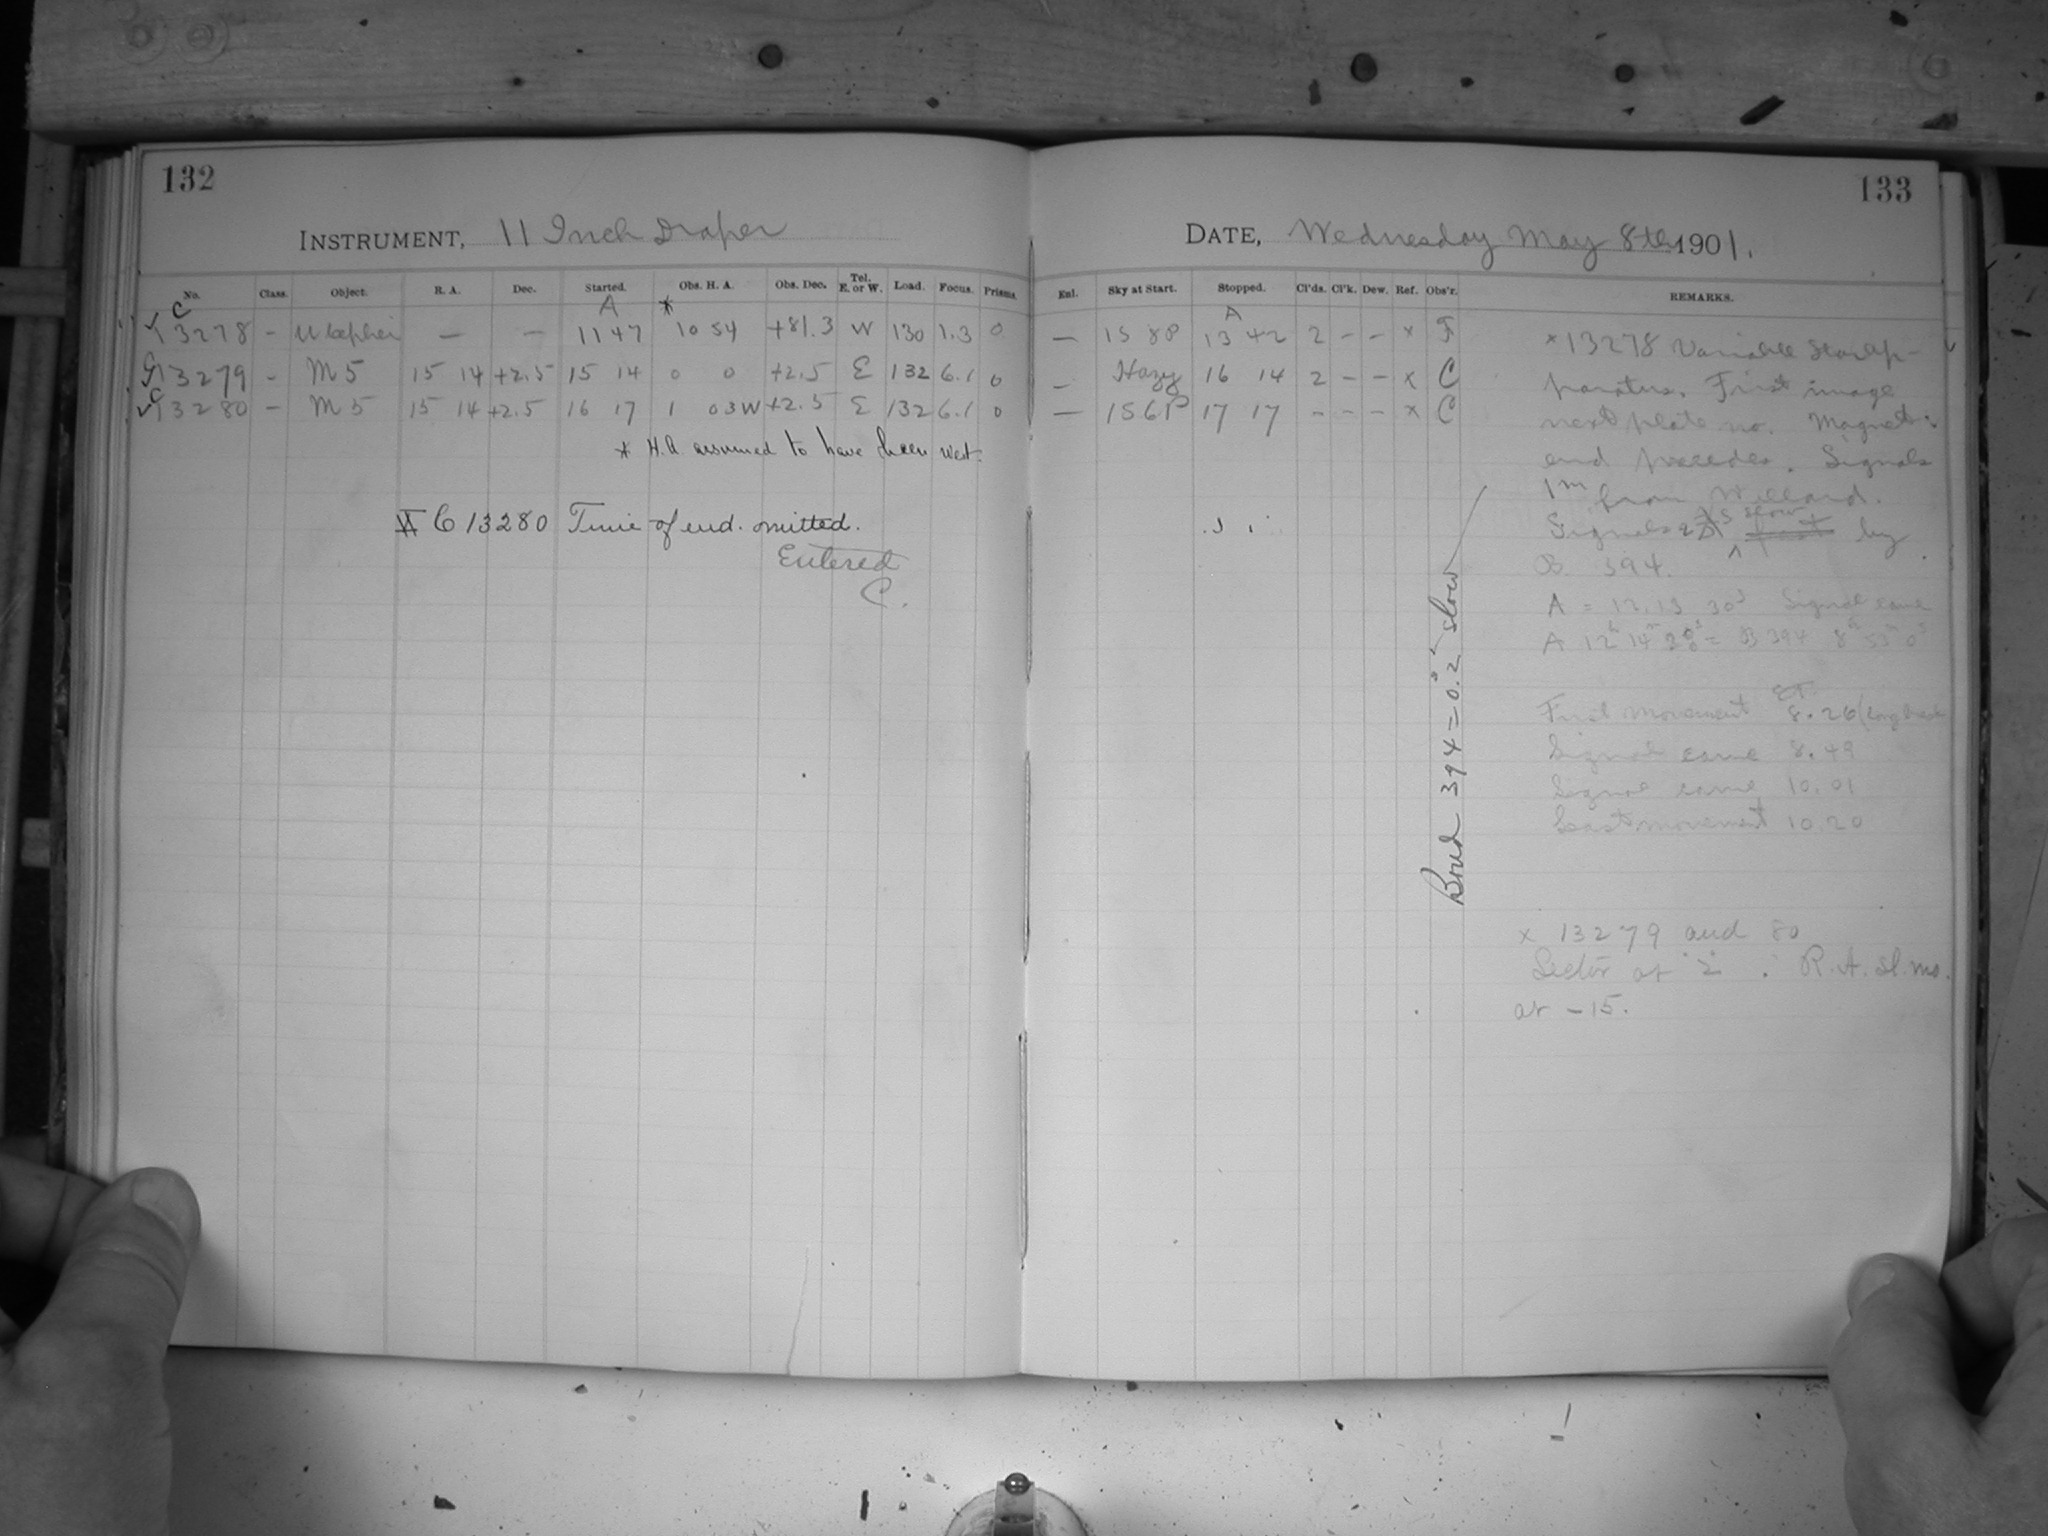 132
INSTRUMENT, 11 Inch Draper
No. Class. Object. R. A. Dec. Started. Obs. H. A. Obs. Dec. Tel. E. or W. Load. Focus. Prisms.
C A *
13278 - U Cephei — — 11 47 10 54 +81.3 W 130 1.3 0
13279 - M 5 15 14 +2.5 15 14 0 0 +2.5 E 132 6.1 0
13280 - M 5 15 14 +2.5 16 17 1 03W +2.5 E 132 6.1 0
* H.A. assumed to have been West.
C 13280 Time of end. omitted.
Entered
C.
133
DATE, Wednesday May 8th 1901.
Enl. Sky at Start. Stopped. Cl'ds. Cl'k. Dew. Ref. Obs'r. REMARKS.
A
— 15 8P 13 42 2 - - x F
— Hazy 16 14 2 - - x C
— 15 6P 17 17 - - - x C
x 13278 Variable Star Ap-
paratus. First image
next plate no. Magnet
end precedes. Signals
1m from Willard.
Signals slow by
B. 394.
A = 12.13 30s Signal came
A 12h 14m 20s = B 394 8h 53m 0s
First movement 8.26
Signal came 8.49
Signal came 10.01
Last movement 10.20
Bond 394 = 0s.2 slow
x 13279 and 80
Sector at 2. R.A. sl. mo.
at -15.